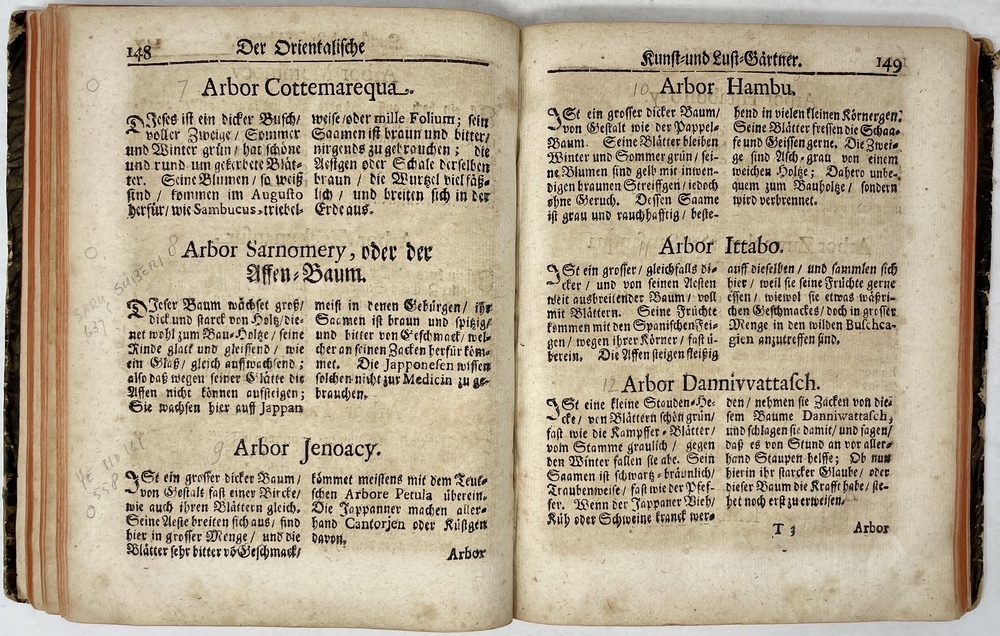 148 Der Orientalische
7 Arbor Cottemarequa.
DIeses ist ein dicker Busch/
voller Zweige / Sommer
und Winter grün / hat schöne
und rund um gekerbte Blät-
ter. Seine Blumen / so weiß
sind / kommen im Augusto
herfür / wie Sambucus, triebel-
weise / oder mille Folium; sein
Saamen ist braun und bitter/
nirgends zu gebrauchen; die
Aestgen oder Schale derselben
braun / die Wurtzel viel fäß-
lich / und breiten sich in der
Erde aus.
8 Arbor Sarnomery, oder der
Affen-Baum.
DIeser Baum wächset groß/
dick und starck von Holtz / die-
net wohl zum Bau-Holtze / seine
Rinde glatt und gleissend / wie
ein Glaß / gleich auffwachsend;
also daß wegen seiner Glätte die
Affen nicht können aufsteigen;
Sie wachsen hier auff Jappan
meist in denen Gebürgen / ihr
Saamen ist braun und spitzig/
und bitter von Geschmack / wel-
cher an seinen Zacken herfür köm-
met. Die Japponesen wissen
solchen nicht zur Medicin zu ge-
brauchen.
9 Arbor Jenoacy.
ISt ein grosser dicker Baum/
von Gestalt fast einer Bircke/
wie auch ihren Blättern gleich.
Seine Aeste breiten sich aus / sind
hier in grosser Menge / und die
Blätter sehr bitter võ Geschmack/
kömmet meistens mit dem Teut-
schen Arbore Petula überein.
Die Jappanner machen aller-
hand Cantorjen oder Küstgen
davon.
Arbor
Kunst- und Lust-Gärtner. 149
10 Arbor Hambu.
ISt ein grosser dicker Baum/
von Gestalt wie der Pappel-
Baum. Seine Blätter bleiben
Winter und Sommer grün / sei-
ne Blumen sind gelb mit inwen-
digen braunen Streiffgen / iedoch
ohne Geruch. Dessen Saame
ist grau und rauchhafftig / beste-
hend in vielen kleinen Körnergen.
Seine Blätter fressen die Schaa-
fe und Geissen gerne. Die Zwei-
ge sind Asch-grau von einem
weichen Holtze; Dahero unbe-
quem zum Bauholtze / sondern
wird verbrennet.
11 Arbor Ittabo.
ISt ein grosser / gleichfalls di-
cker / und von seinen Aesten
weit ausbreitender Baum / voll
mit Blättern. Seine Früchte
kommen mit den Spanischen Fei-
gen / wegen ihrer Körner / fast ü-
berein. Die Affen steigen fleißig
auff dieselben / und sammlen sich
hier / weil sie seine Früchte gerne
essen / wiewol sie etwas wäßri-
chen Geschmackes / doch in grosser
Menge in den wilden Buscha-
gien anzutreffen sind.
12 Arbor Dannivvattasch.
ISt eine kleine Stauden-He-
cke / von Blättern schön grün/
fast wie die Kampffer-Blätter/
vom Stamme graulich / gegen
den Winter fallen sie abe. Sein
Saamen ist schwartz-bräunlich/
Traubenweise / fast wie der Pfef-
fer. Wenn der Jappaner Vieh/
Küh oder Schweine kranck wer-
den / nehmen sie Zacken von die-
sem Baume Danniwattasch,
und schlagen sie damit / und sagen/
daß es von Stund an vor aller-
hand Staupen helffe; Ob nun
hierin ihr starcker Glaube / oder
dieser Baum die Krafft habe / ste-
het noch erst zu erweisen.
T 3 Arbor